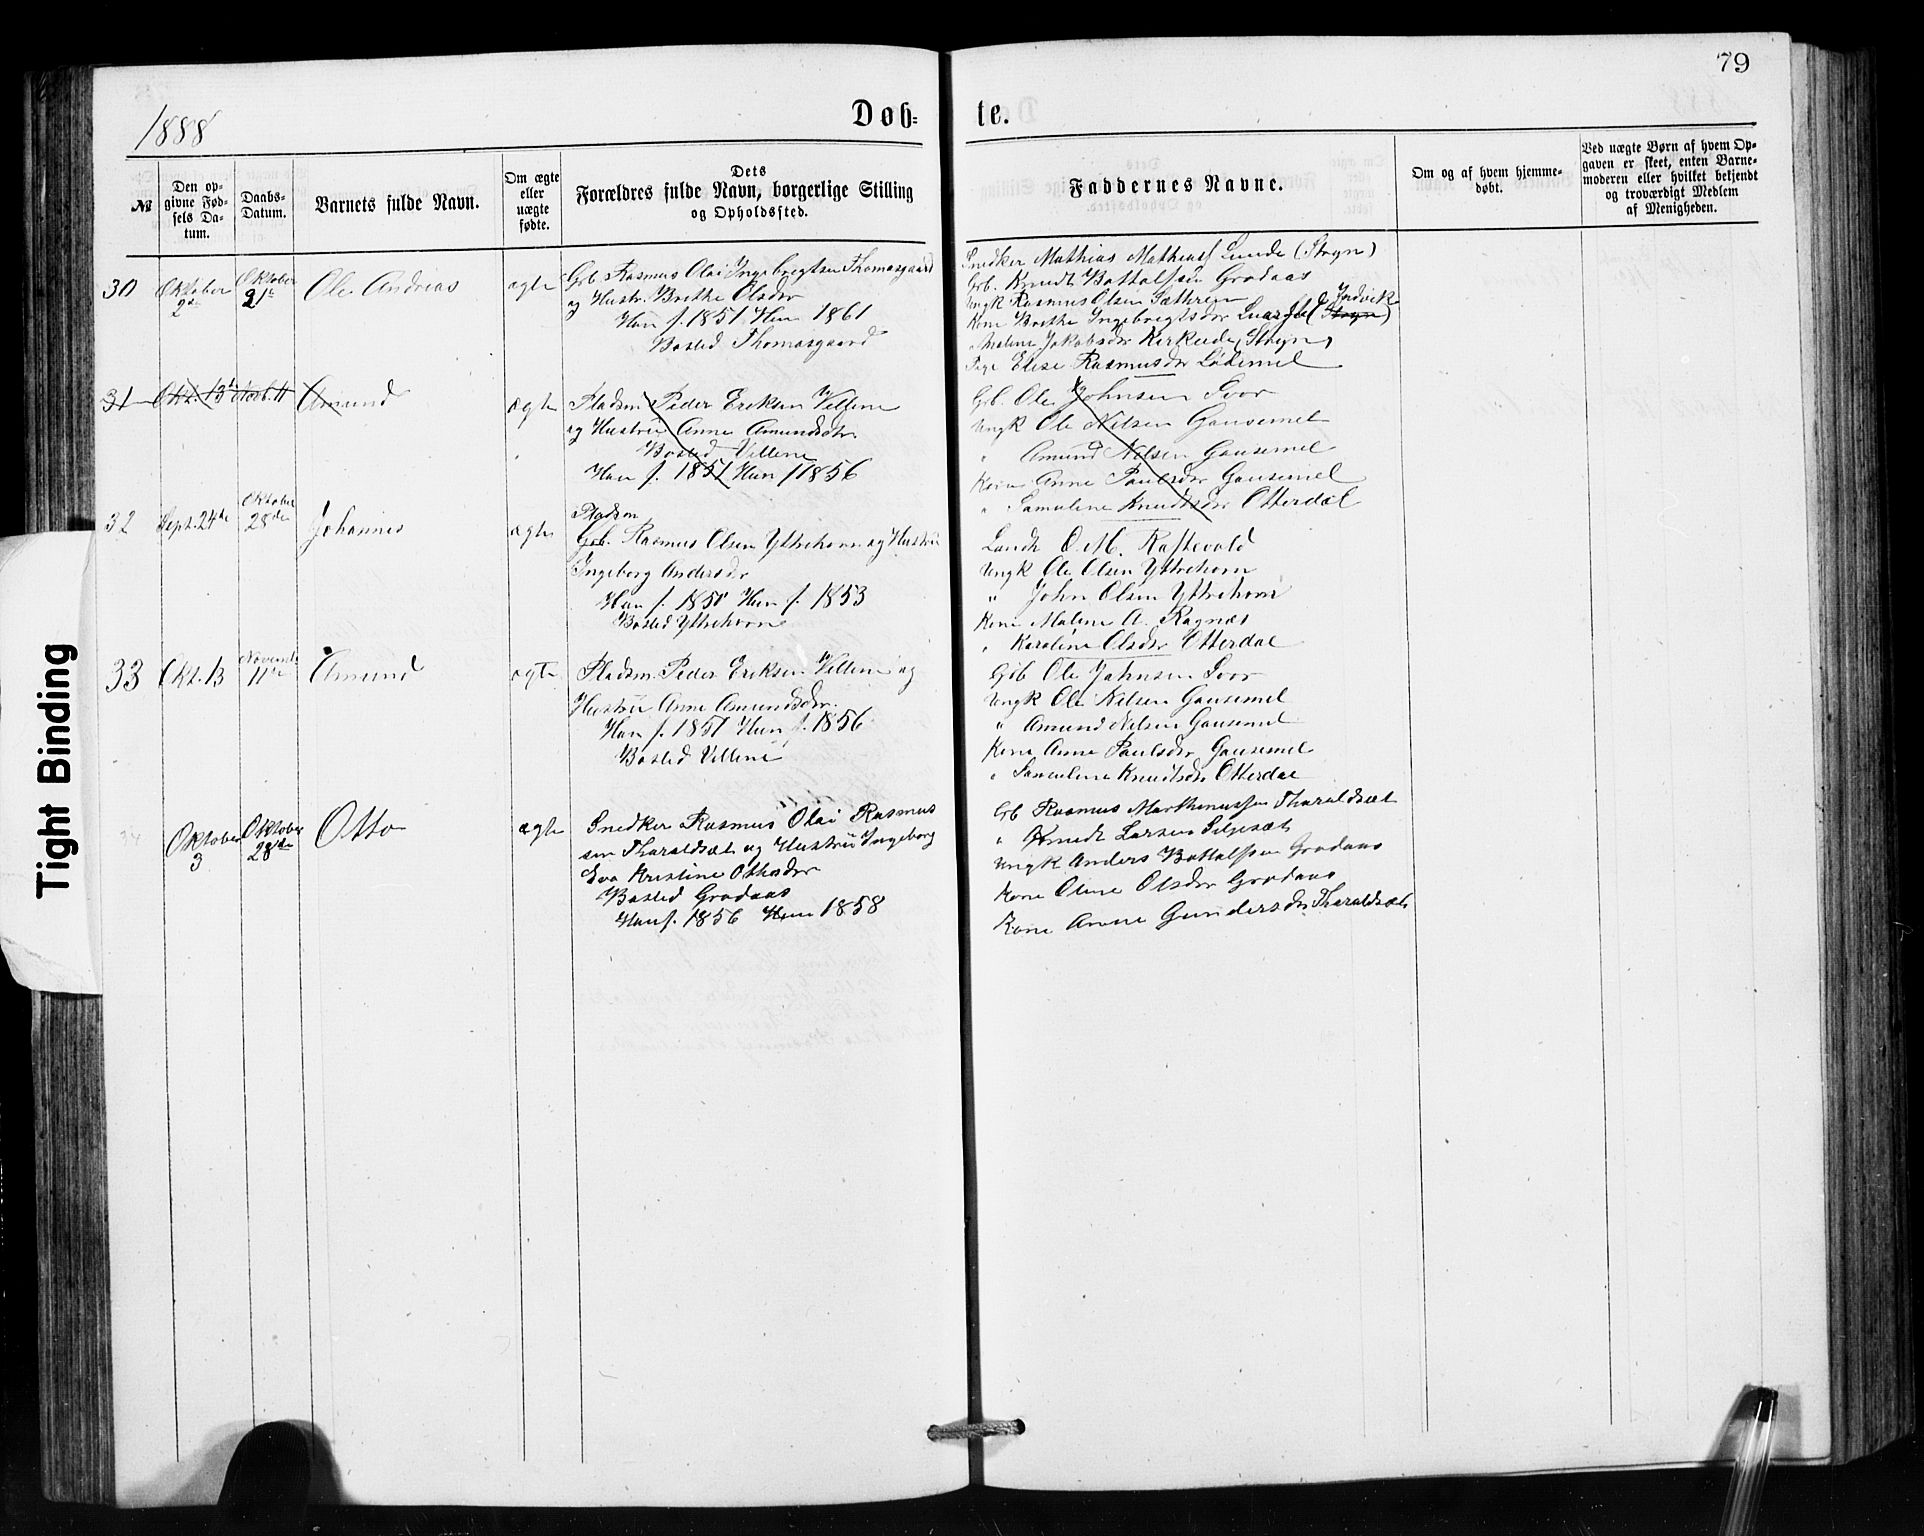 79
1888
Døb-
te.
№
Den op-
givne Fød-
sels Da-
tum.
Daabs-
Datum.
Barnets fulde Navn.
Om ægte
eller
uægte
fødte.
Dets
Forældres fulde Navn, borgerlige Stilling
og Opholdssted.
Faddernes Navne.
Om og af hvem hjemme-
døbt.
Ved uægte Børn af hvem Op-
gaven er skeet, enten Barne-
moderen eller hvilket bekjendt
og troværdigt Medlem
af Menigheden.
30 Oktober Oktober Ole Andreas ægte Grb. Rasmus Olai Ingebregtsen Thomasgaard
2de 21de og Hustr. Brethe Olsdr
Han f. 1851. Hun 1861
Bosted Thomasgaard
Snedker Mathias Mathiass Lunde (Stryn)
Grb. Knudt Bottolfsen Grodaas
Ungk Rasmus Olsen Sæthren
Indvik
Kone Brethe Ingebregtsdr (Stryn)
Malene Jakobsdr Kirkeide (Stryn)
Pige Elise Rasmusdr Lødemel
31 Okt. 13de Novb. 11 Amund ægte Pladsm Peder Eriksen Villene
og Hustru Anne Amundsdtr.
Bosted Villene
Han f. 1851 Hun f 1856
Grb. Ole Johnsen Svor
Ungk Ole Nilsen Gausemel
" Amund Nilsen Gausemel
Kone Anne Paulsdr Gausemel
" Samuline Knudtsdr Otterdal
32 Sept. 24de Oktober
28de Johannes ægte Pladsm
Grb. Rasmus Olsen Yttrehorn og Hustru
Ingeborg Andersdr
Han f. 1850 Hun f. 1853
Bosted Yttrehorn
Landh O. M. Raftevold
Ungk Ole Olsen Yttrehorn
" John Olsen Yttrehorn
Kone Malene A. Ragnæs
" Karoline Olsdr Otterdal
33 Okt. 13 Novemb
11de Amund ægte Pladsm. Peder Eriksen Villene og
Hustru Anne Amundsdr.
Han f. 1851 Hun f. 1856
Bosted Villene
Grb Ole Johnsen Svor
Ungk Ole Nilsen Gausemel
" Amund Nilsen Gausemel
Kone Anne Paulsdr Gausemel
" Samuline Knudtsdr Otterdal
34 Oktober Oktober Otto ægte Snedker Rasmus Olai Rasmus
3 28de sen Tharaldsæt og Hustru Ingeborg
Eva Kristine Othosdr
Bosted Grodaas
Han f. 1856 Hun 1858
Grb Rasmus Marthinussen Tharaldsæt
" Knudt Larsen Siljesæt
Ungk Anders Bottolfsen Grodaas
Kone Oline Olsdr Grodaas
Kone Anne Gundersdr Tharaldsæt
Tight Binding